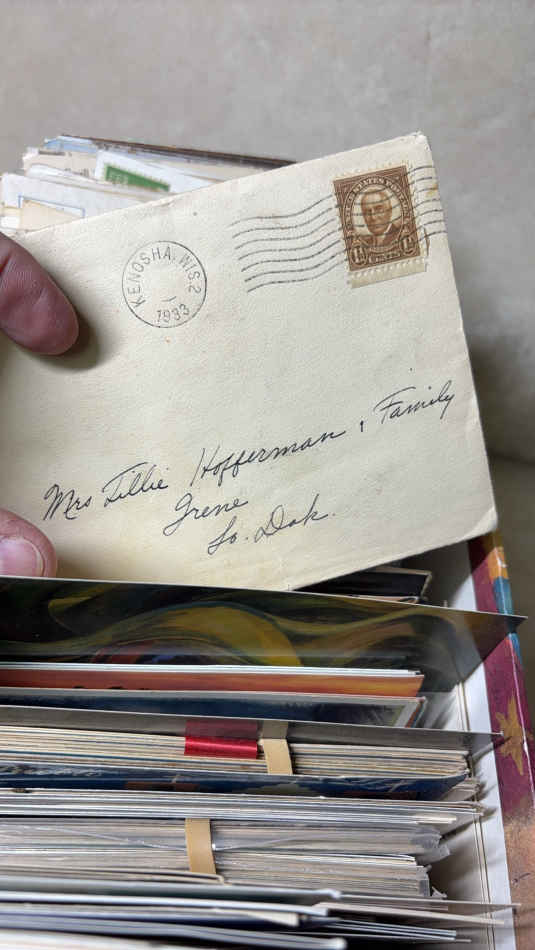 KENOSHA, WIS 2
1933
UNITED STATES POSTAGE
1½ 1½
CENTS
Mrs Tillie Hofferman & Family
Irene
So. Dak.